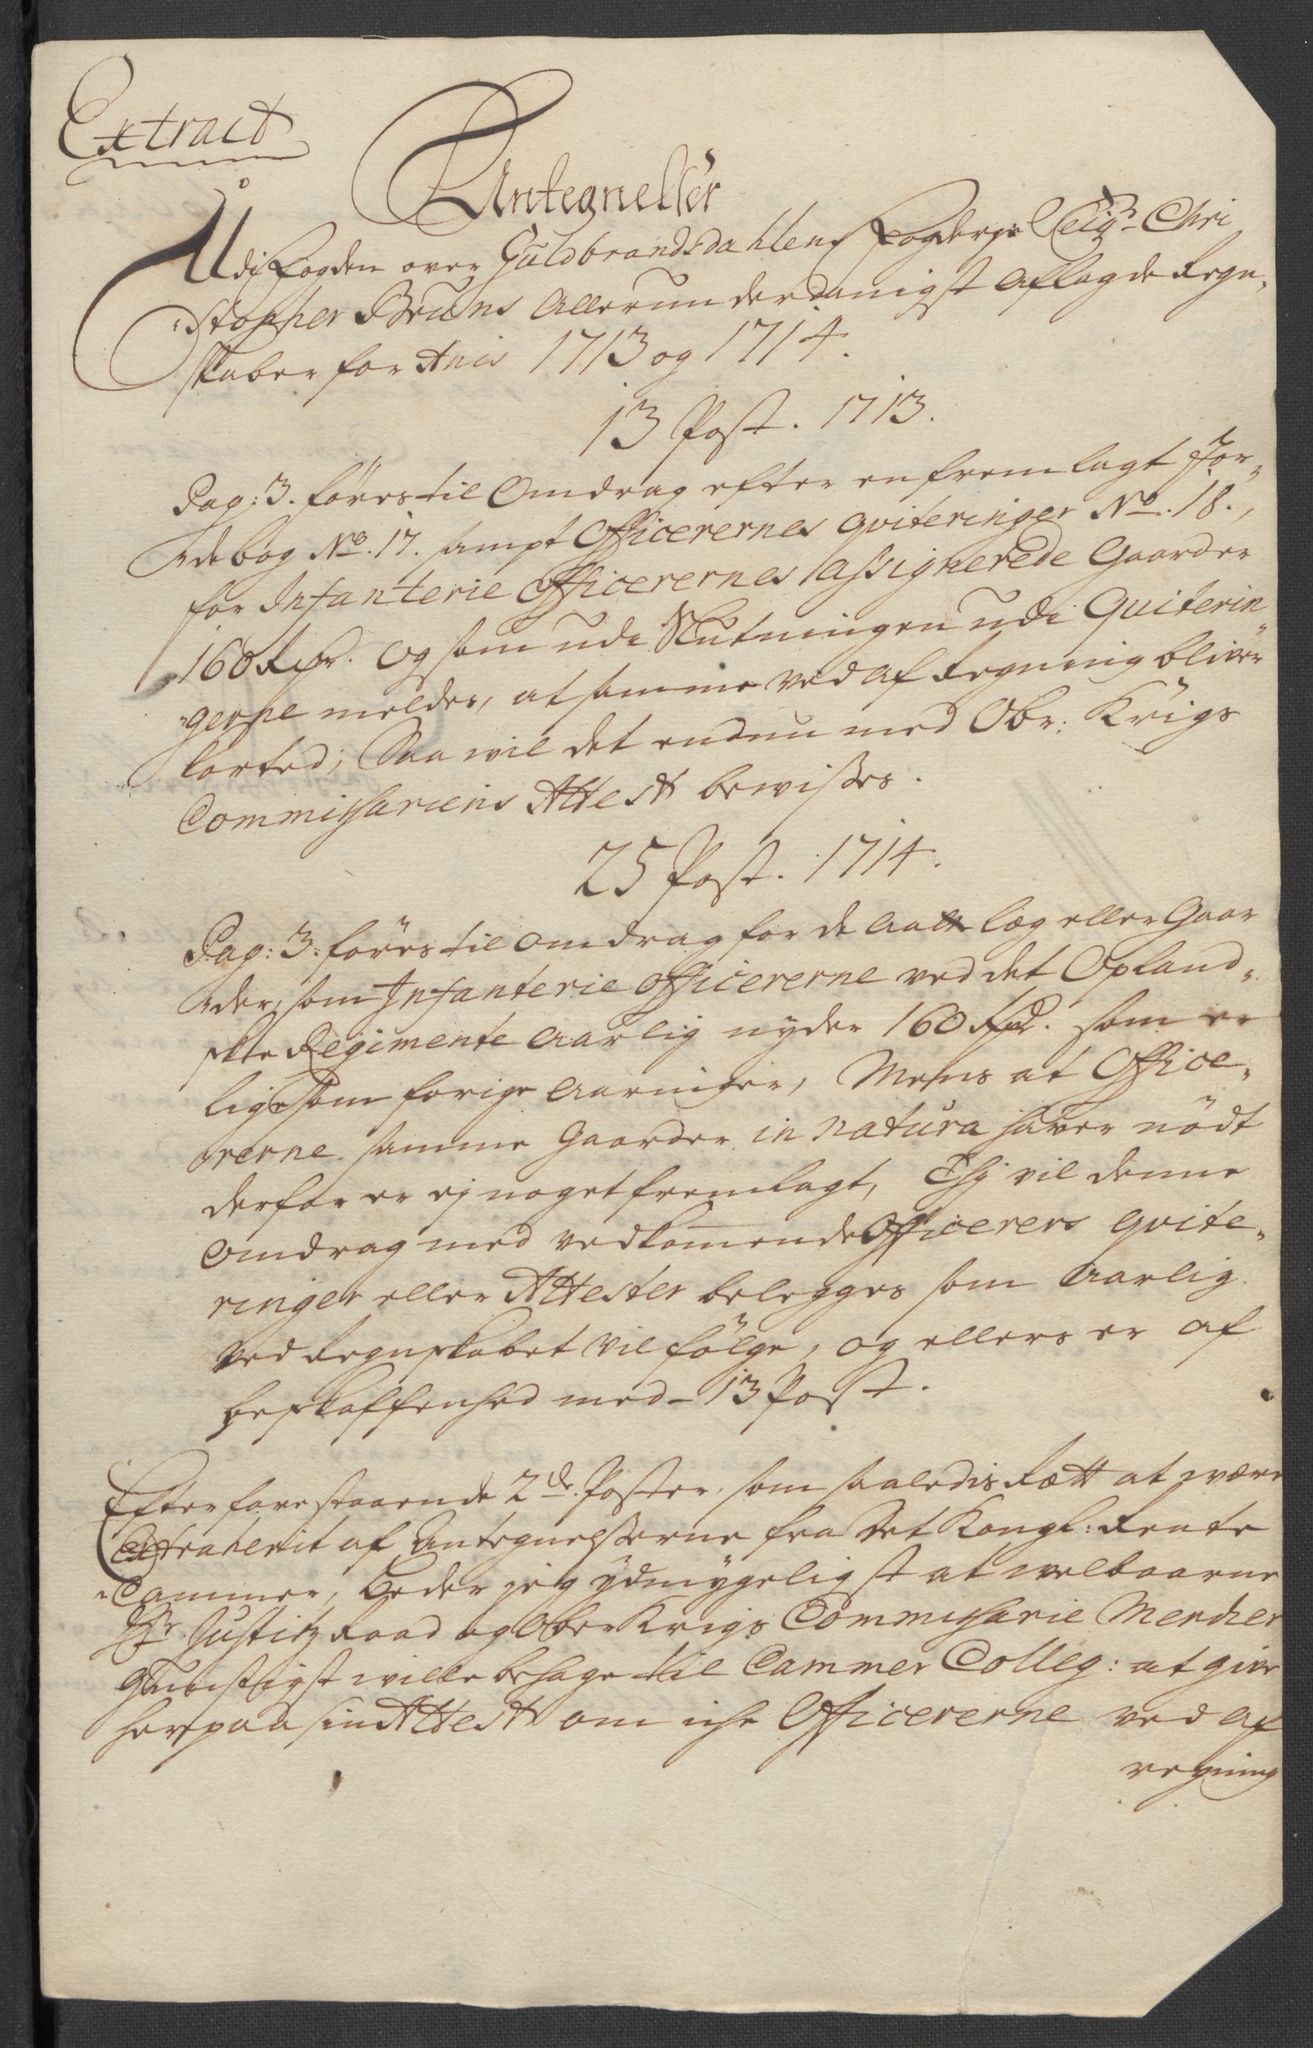 Extract
Antegnelser
Udi Fogden over Guldbrandsdahlens Fogderje Seigr. Chri
stopher Bruns Allerunderdanigst Aflagde Regn-
skaber for Anis 1713 og 1714.
13 Post. 1713.
Pag: 3. föres til Omdrag efter en fremlagt Jor-
debog No. 17. sampt Officerernes qviteringer No. 18.,
for Infanterie Officerernes Assignerede Gaarder
160 Rdr. Og som udi Slutningen udi Qviterin
gerne meldes, at samme ved afregning bliver
korted; Saa vil det endnu med Obr: Krigs
Commissariens Attest bewisses.
25 Post. 1714.
Pag: 3. föres til omdrag for de læg eller Gaar
der, som Infanterie officererne ved det Opland-
ske Regimente Aarlig nyder 160 Rdr. som er
ligesom forige Aaringer, Mens at Office-
rerne samme Gaarder in natura haver nödt
derfor er ej noget fremlagt, Thj vil denne
Omdrag med vedkommende Officerers qvite-
ringer eller Attester belegges som Aarlig
ved Regnskabet vil fölge, og ellers er af
beskaffenhed med 13 Post.
Efter forestaaende 2de. Poster, som saaledis Rætt at være
Extraherit af Antegnelsserne fra Det Kongl: Rente
Cammer, Beder jeg ydmygeligst at welbaarne
Hr. Justitz Raad og Ober Krigs Commissarie
gunstigst wille behage til Cammer Colleg: at give
herpaa sin Attest om iche Officererne ved af
regning